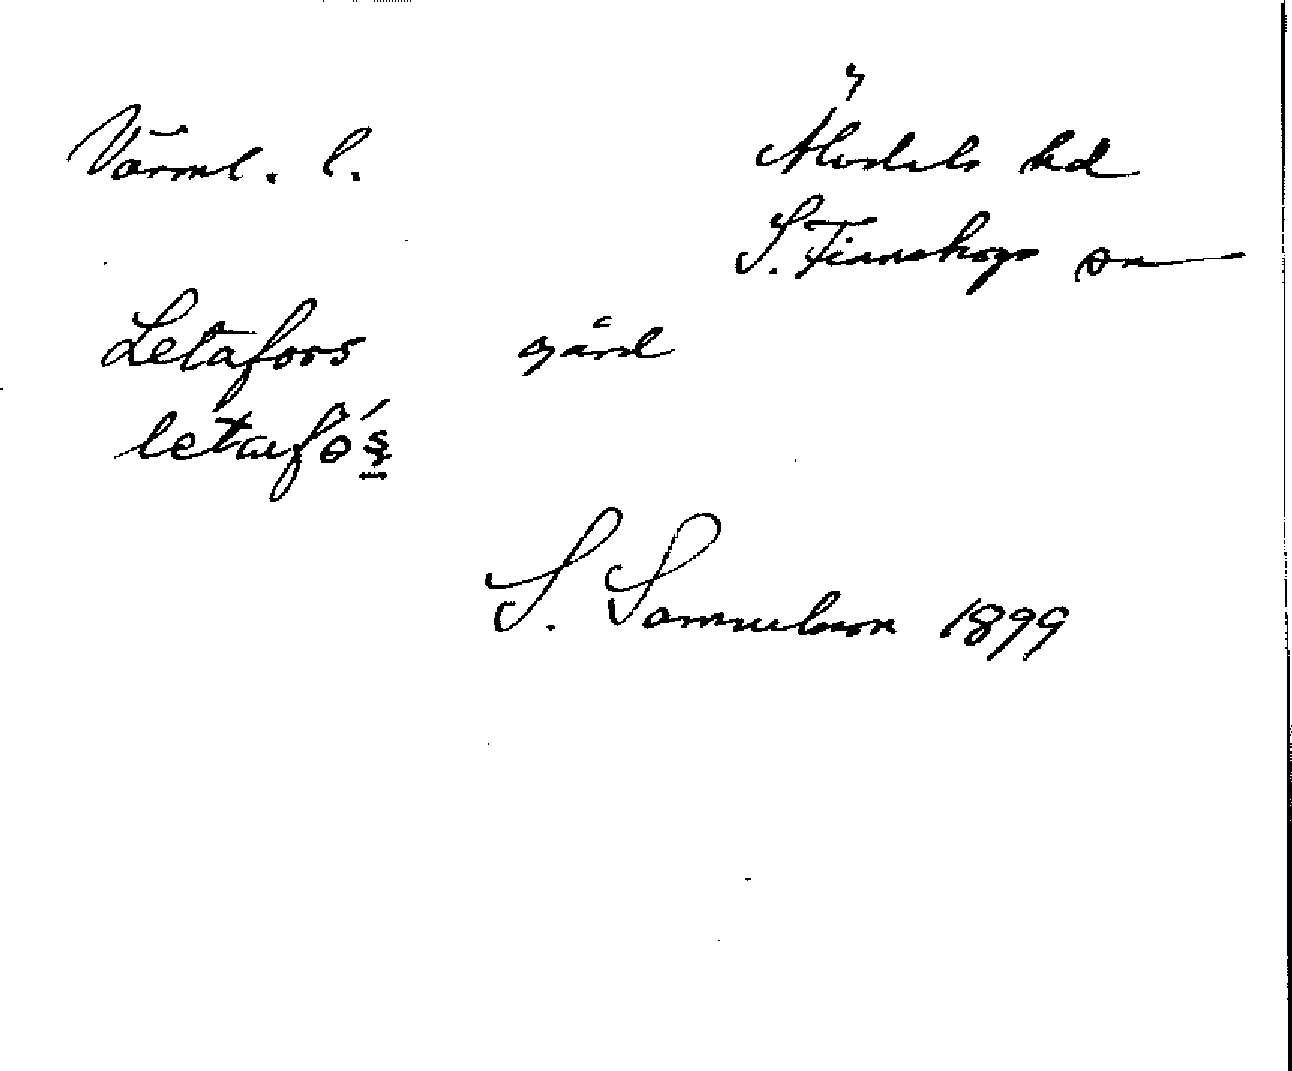 Värml. l. Älvdals hd
S. Finnskoga sn
Letafors gård
letafó̀s̱
S. Samuelsson 1899